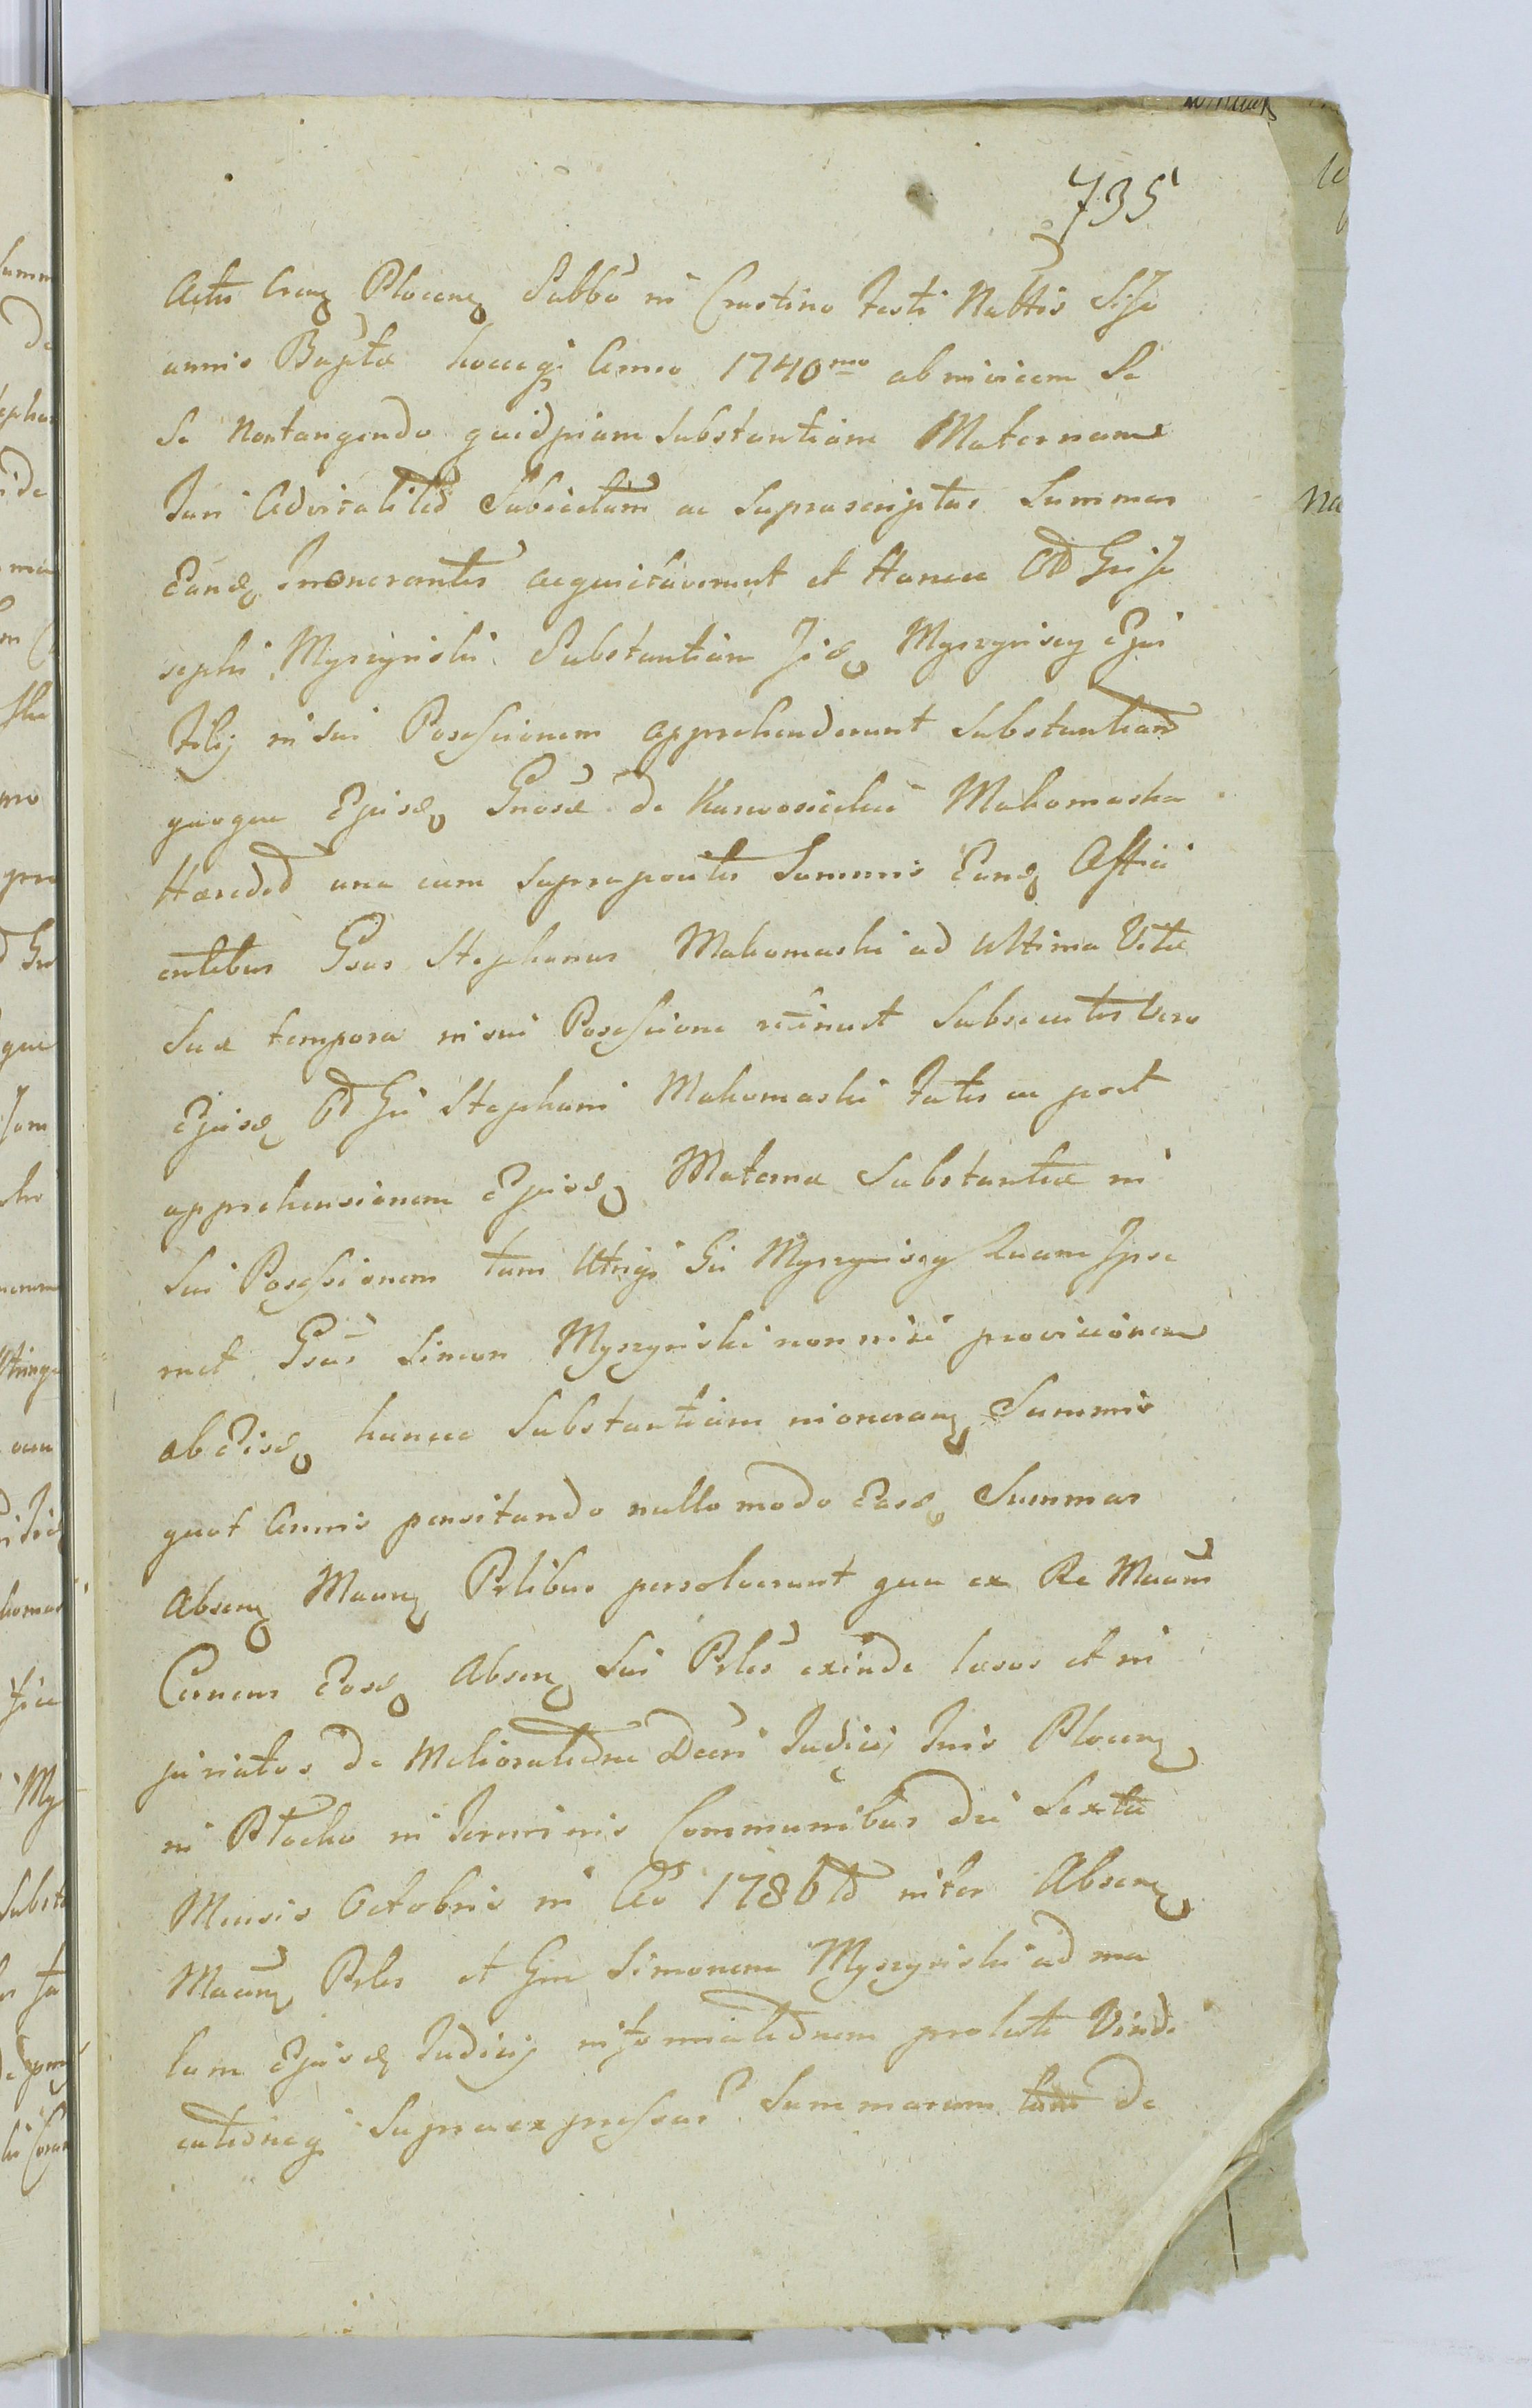 735
Actis Cren Plocen Sabbo in Crastino Festi Nattis S Jo
annis Baptæ hocceq Anno 1740mo abinvicem Se
Se Nontangendo quidpiam Substantiam Maternam
Juri Advitalitio Subiectam ac Suprascriptas Summas
Eand Inonerantes acquietaverunt et Hancce OD Gri Jo
sephi Myszynski Substantiam Jid Myszynscy Ejus
Filij in Sui Possessionem apprehenderunt Substantiam
quoque Ejusd Gnosæ de Karwosiecki Makomaska
Hæredem una cum suprapositis Summis Eand Affici
entibus Gsus Stephanus Makomaski ad Ultima Vitæ
Suæ tempora in sui Possessione retinuit Subsecutis Vero
Ejusd OD Gri Stephani Makomaski Fatis ac post
apprehensionem Ejusd Maternæ Substantiæ in
Sui Possessionem tam Utriq Gri Myszynscy Quam Ipse
met Gsus Simon Myszynski non nisi provisionem
ab Eisd hancce Substantiam inoneran Summis
quot Annis pensitando nullo modo Easd Summas
Absen Maan Prlibus persoluerunt qua ex Re Maam
Cernens Eosd Absen Sui Prles exinde læsos et in
juriatos de Melioratione Decri Judicij Tris Plocen
in Płocko in Terminis Communibus die Sexta
Mensis Octobris in Ao 1786to inter Absen
Maam Prles et Grm Simonem Myszynski ad ma
lam Ejusd Judicij informationem prolati Vindi
cationeq Supraexpressar Summarum tam de